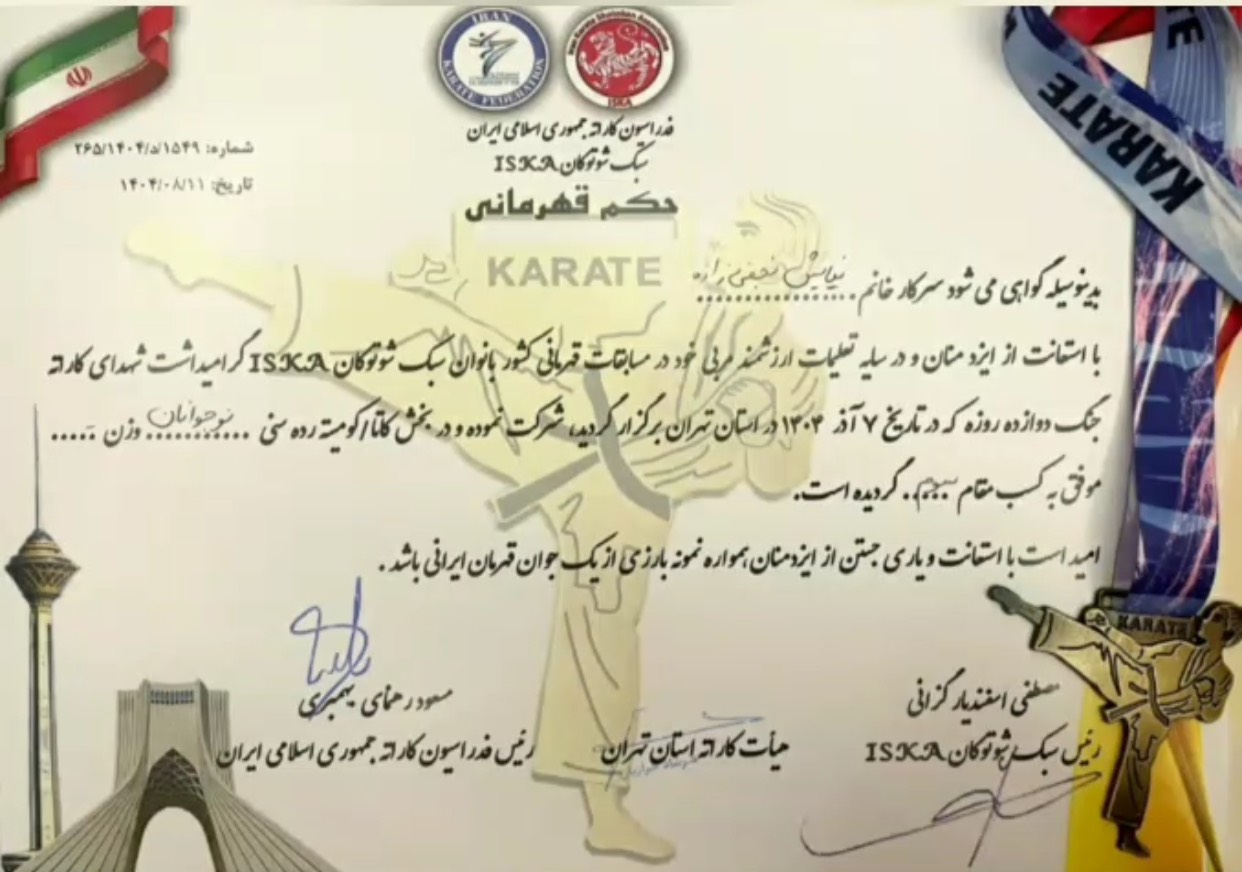 IRAN
KARATE FEDERATION
Iran Karate Shotokan Association
ISKA
فدراسیون کاراته جمهوری اسلامی ایران
سبک شوتوکان ISKA
حکم قهرمانی
شماره: ۲۶۵/۱۴۰۴/د/۱۵۴۹
تاریخ: ۱۴۰۴/۰۸/۱۱
KARATE
KARATE
بدینوسیله گواهی می شود سرکار خانم نیایش نجفی زاده
با استعانت از ایزد منان و در سایه تعلیمات ارزشمند مربی خود در مسابقات قهرمانی کشور بانوان سبک شوتوکان ISKA گرامیداشت شهدای کاراته
جنگ دوازده روزه که در تاریخ ۷ آذر ۱۴۰۴ در استان تهران برگزار گردید، شرکت نموده و در بخش کاتا/کومیته رده سنی نوجوانان وزن
موفق به کسب مقام گردیده است.
امید است با استعانت و یاری جستن از ایزدمنان همواره نمونه بارزی از یک جوان قهرمان ایرانی باشد.
KARATE
مصطفی اسفندیار گزانی
رئیس سبک شوتوکان ISKA
هیأت کاراته استان تهران
مسعود رهنمای
رئیس فدراسیون کاراته جمهوری اسلامی ایران